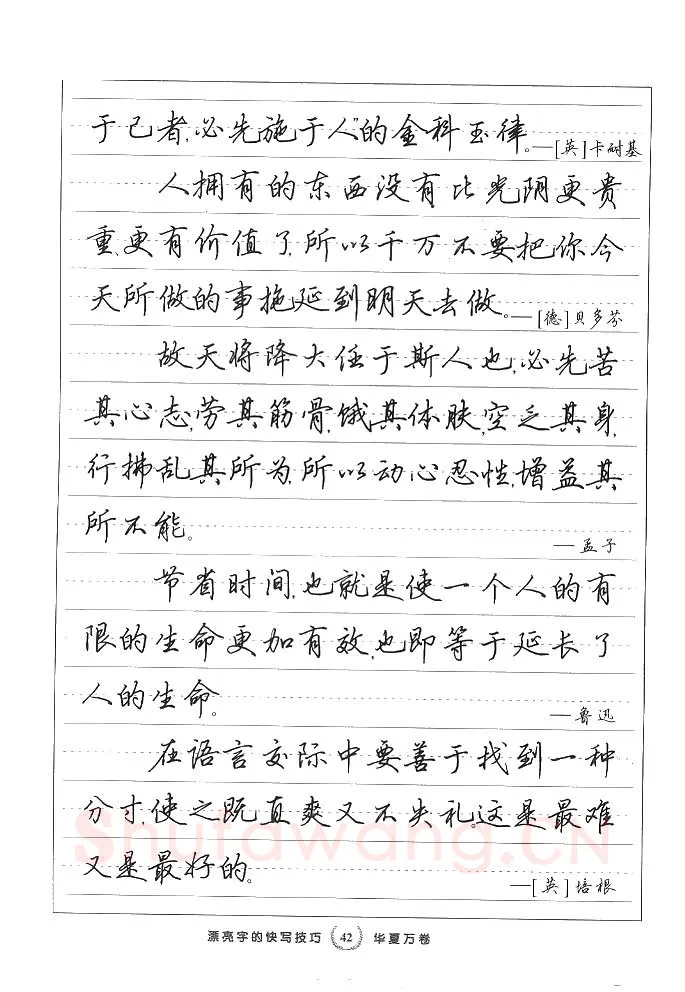 于己者,必先施于人”的金科玉律。—[英]卡耐基
人拥有的东西没有比光阴更贵
重,更有价值了,所以千万不要把你今
天所做的事拖延到明天去做。—[德]贝多芬
故天将降大任于斯人也,必先苦
其心志,劳其筋骨,饿其体肤,空乏其身,
行拂乱其所为,所以动心忍性,增益其
所不能。
—孟子
节省时间,也就是使一个人的有
限的生命更加有效,也即等于延长了
人的生命。
—鲁迅
在语言交际中要善于找到一种
分寸,使之既直爽又不失礼,这是最难
又是最好的。
—[英]培根
Shufawang.CN
漂亮字的快写技巧 42 华夏万卷